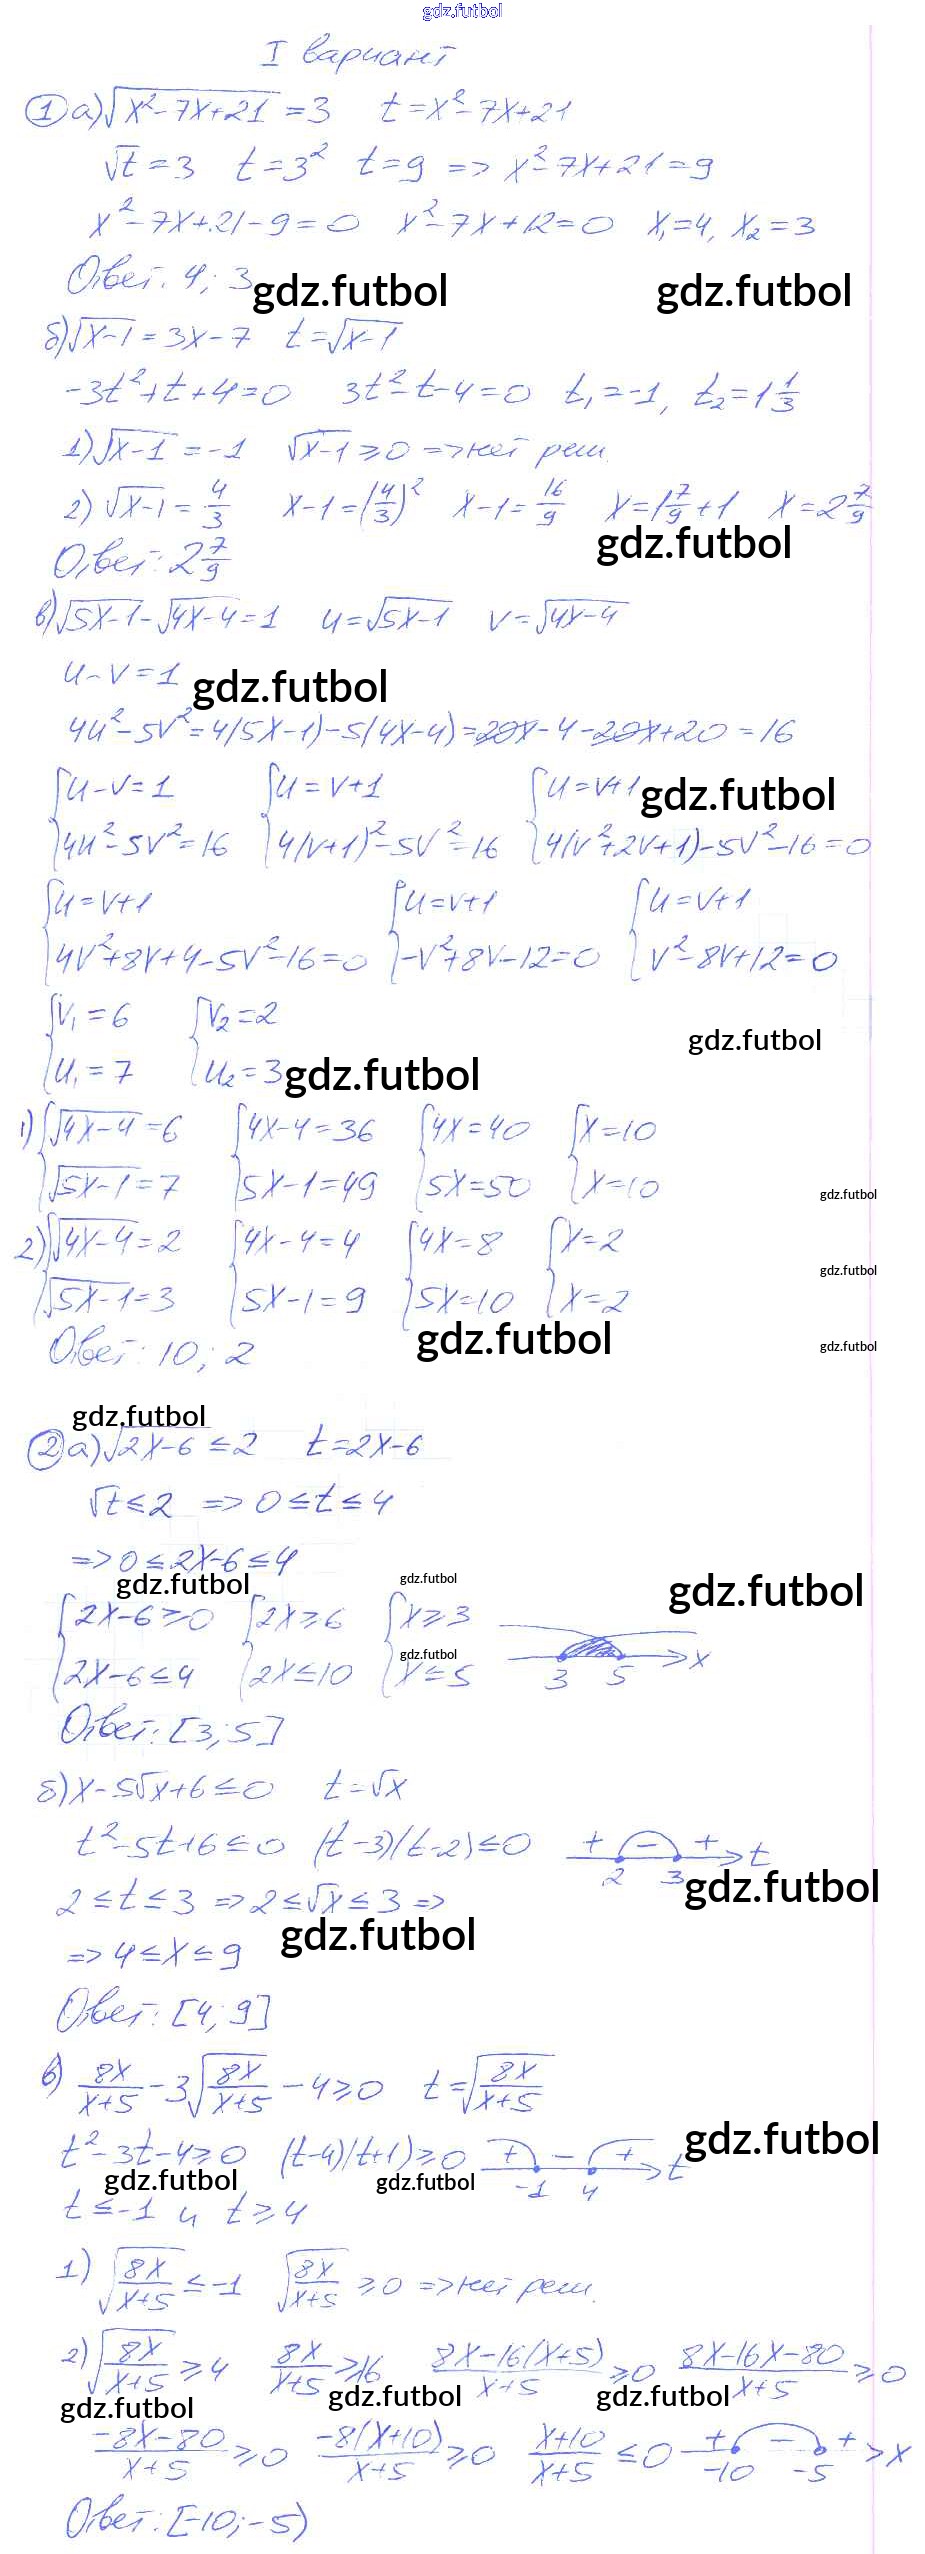 gdz.futbol
I вариант
① а) √(x²-7x+21) = 3   t = x²-7x+21
√t = 3   t = 3²   t = 9 => x²-7x+21 = 9
x²-7x+21-9=0   x²-7x+12=0   x₁=4, x₂=3
Ответ: 4; 3
gdz.futbol gdz.futbol
б) √(x-1) = 3x-7   t = √(x-1)
-3t²+t+4=0   3t²-t-4=0   t₁=-1, t₂=1 1/3
1) √(x-1) = -1   √(x-1) ≥ 0 => нет реш.
2) √(x-1) = 4/3   x-1=(4/3)²   x-1=16/9   x=1 7/9+1   x=2 7/9
gdz.futbol
Ответ: 2 7/9
в) √(5x-1) - √(4x-4) = 1   u=√(5x-1)   v=√(4x-4)
u-v=1 gdz.futbol
4u²-5v²=4(5x-1)-5(4x-4)=20x-4-20x+20=16
{u-v=1   {u=v+1   {u=v+1 gdz.futbol
{4u²-5v²=16   {4(v+1)²-5v²=16   {4(v²+2v+1)-5v²-16=0
{u=v+1   {u=v+1   {u=v+1
{4v²+8v+4-5v²-16=0   {-v²+8v-12=0   {v²-8v+12=0
{v₁=6   {v₂=2
gdz.futbol
{u₁=7   {u₂=3 gdz.futbol
1) {√(4x-4)=6   {4x-4=36   {4x=40   {x=10
{√(5x-1)=7   {5x-1=49   {5x=50   {x=10
gdz.futbol
2) {√(4x-4)=2   {4x-4=4   {4x=8   {x=2
gdz.futbol
{√(5x-1)=3   {5x-1=9   {5x=10   {x=2
gdz.futbol
Ответ: 10; 2
gdz.futbol
gdz.futbol
② а) √(2x-6) ≤ 2   t=2x-6
√t ≤ 2 => 0 ≤ t ≤ 4
=> 0 ≤ 2x-6 ≤ 4
gdz.futbol gdz.futbol gdz.futbol
{2x-6≥0   {2x≥6   {x≥3
gdz.futbol
{2x-6≤4   {2x≤10   {x≤5   3 5 x
Ответ: [3; 5]
б) x-5√x+6≤0   t=√x
t²-5t+6≤0   (t-3)(t-2)≤0   + - + 2 3 t
gdz.futbol
2≤t≤3 => 2≤√x≤3 =>
gdz.futbol
=> 4≤x≤9
Ответ: [4; 9]
в) 8x/(x+5) - 3√(8x/(x+5)) - 4 ≥ 0   t=√(8x/(x+5))
gdz.futbol
t²-3t-4≥0   (t-4)(t+1)≥0   + - + -1 4 t
gdz.futbol gdz.futbol
t≤-1 и t≥4
1) √(8x/(x+5)) ≤ -1   √(8x/(x+5)) ≥ 0 => нет реш.
2) √(8x/(x+5)) ≥ 4   8x/(x+5) ≥ 16   (8x-16(x+5))/(x+5) ≥ 0   (8x-16x-80)/(x+5) ≥ 0
gdz.futbol gdz.futbol gdz.futbol
(-8x-80)/(x+5) ≥ 0   (-8(x+10))/(x+5) ≥ 0   (x+10)/(x+5) ≤ 0   + - + -10 -5 x
Ответ: [-10; -5)